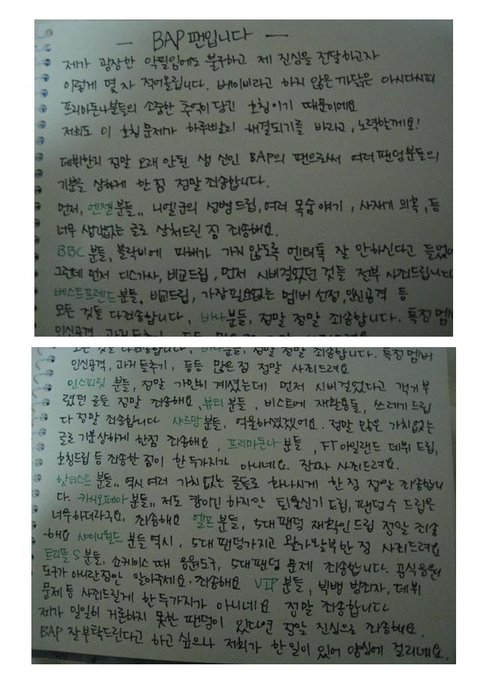 — BAP 팬입니다 —
제가 굉장한 악필임에도 불구하고 제 진심을 전달하고자
이렇게 몇 자 적어올립니다. 베이비라고 하지 않은 까닭은 아시다시피
프리마돈나분들의 소중한 추억이 담긴 호칭이기 때문이에요
저희도 이 호칭문제가 하루빨리 해결되기를 바라고, 노력할게요!
데뷔한지 정말 오래 안된 생 신인 BAP의 팬으로써 여러 팬덤분들의
기분을 상하게 한 점 정말 죄송합니다.
먼저, 엔젤분들,, 니엘군의 성병드립, 여러 목숨 얘기, 사재기 의혹, 등
너무 생각없는 글로 상처드린 점 죄송해요.
BBC 분들, 블락비에 피해가 가지 않도록 멘터톡 잘 안하신다고 들었어
그런데 먼저 디스가사, 비교드립, 먼저 시비걸었던 것들 전부 사죄드립니다
베스트프렌드분들, 비교드립, 가장 필요없는 멤버 선정, 인신공격 등
모든 것들 다 죄송합니다, 바나분들, 정말 정말 죄송합니다. 특정 멤버
인신공격, 과거 들추기, 등등 많은 점 정말 사죄드려요
인스피릿 분들, 정말 가만히 계셨는데 먼저 시비걸었다고 객기부
렸던 글들 정말 죄송해요, 뷰티분들, 비스트에 재활용돌, 쓰레기드립
다 정말 죄송합니다 샤르망분들, 억울하셨겠어요. 정말 많은 가치없는
글로 기분상하게 한점 죄송해요, 프리마돈나 분들, FT아일랜드 데뷔 드립,
호칭드립 등 죄송한 점이 한두가지가 아니네요. 잠깐 사죄드려요.
핫티스트 분들,, 역시 여러 가치없는 글들로 화나시게 한 점 정말 죄송합니
다. 카시오페아 분들,, 저도 팬이긴 하지만 퇴물신기 드립, 팬덤수 드립은
너무하더라구요, 죄송해요 엘프 분들, 5대 팬덤 재확인드립 정말 죄송
해요 샤이니월드 분들 역시, 5대 팬덤가지고 왈가왈부한 점 사죄드려요
트리플S 분들, 쇼케이스 때 응원도구, 5대팬덤 문제 죄송합니다. 공식응원
도구가 아니란점만 알아주시요.. 죄송해요 VIP 분들, 빅뱅 범죄자, 데뷔
문제 등 사죄드릴게 한두가지가 아니네요 정말 죄송합니다
제가 일일히 거론하지 못한 팬덤이 있다면 정말 진심으로 죄송해요.
BAP 잘부탁드린다고 하고 싶으나 저희가 한 일이 있어 양심에 걸리네요.